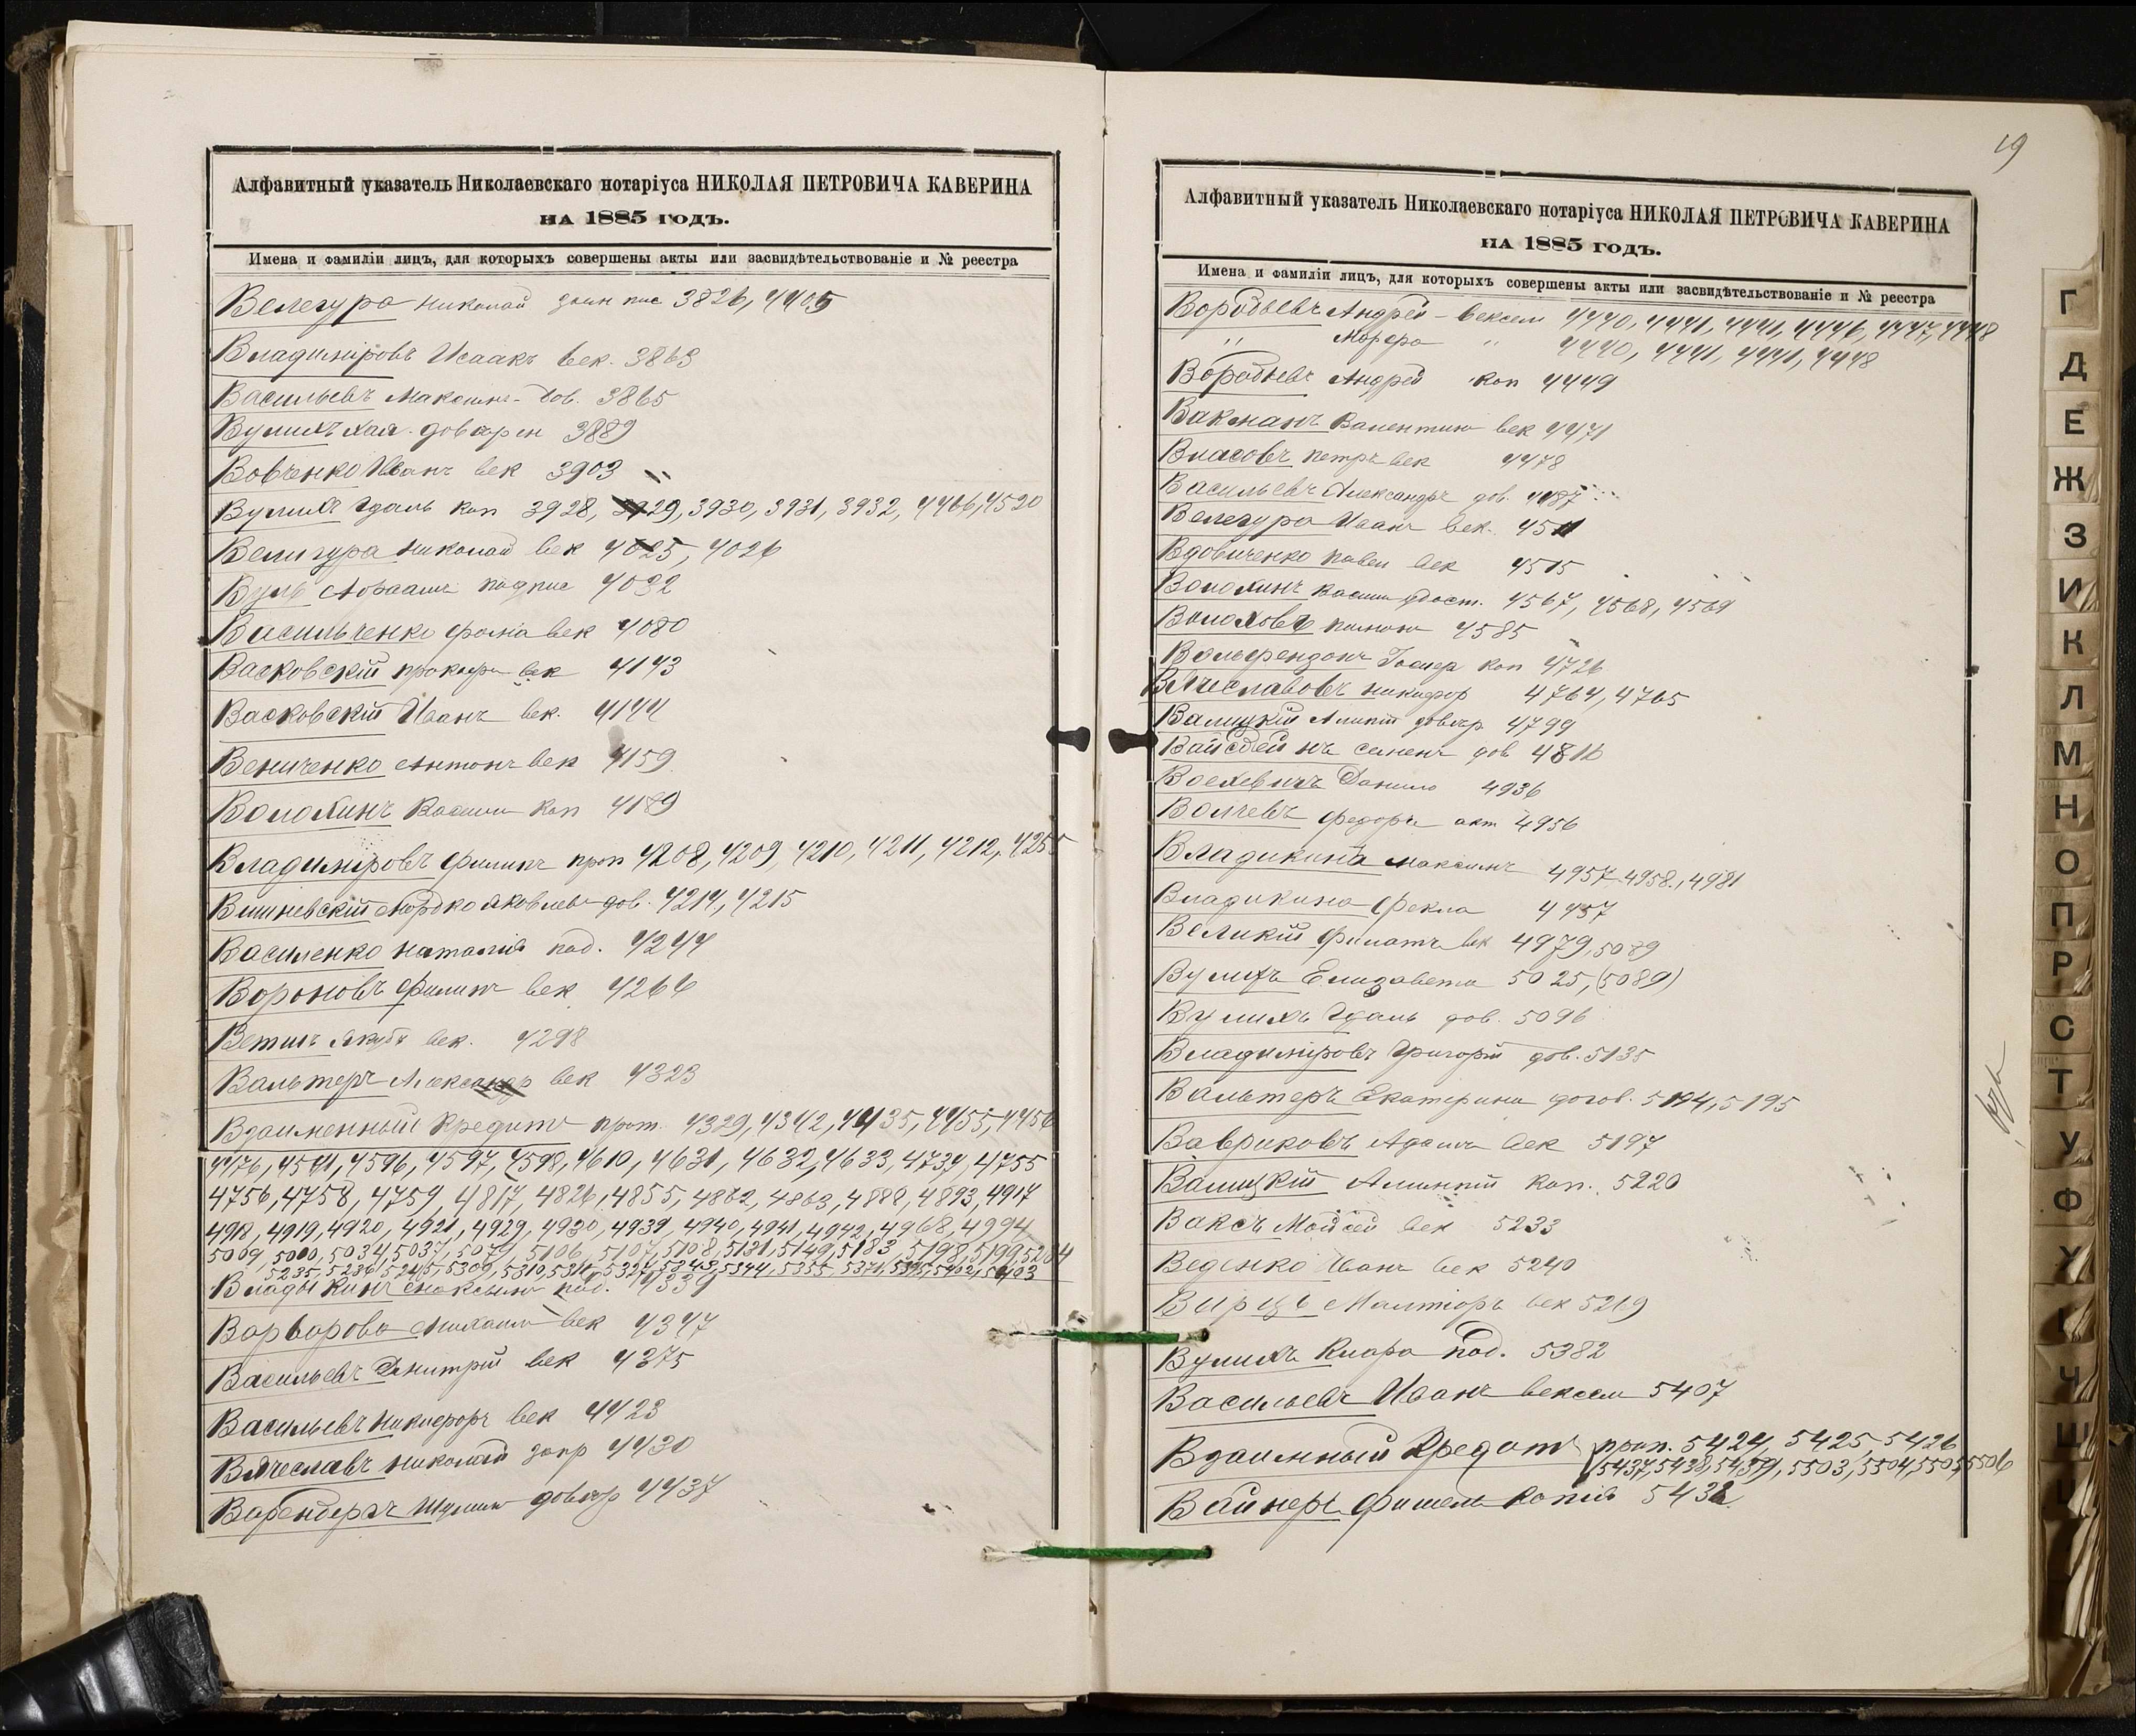 Алфавитный указатель Николаевскаго нотаріуса НИКОЛАЯ ПЕТРОВИЧА КАВЕРИНА
НА 1885 ГОДЪ.
Имена и фамиліи лицъ, для которыхъ совершены акты или засвидѣтельствованіе и № реестра
Велегура Николай 3826, 4405
Владиміровъ Исаакъ век. 3863
Васильевъ Максимъ дов. 3865
Вулихъ Хая доварен 3889
Вовченко Иванъ век 3903
Вулихъ Гдаль коп 3928, 3929, 3930, 3931, 3932, 4466, 4520
Велигура Николай век 4025, 4026
Вуль Абраамъ подпис 4032
Васильченко Фома век 4080
Васковскій Прокофи век 4143
Васковскій Иванъ век. 4144
Вениченко Антонъ век 4159
Волохинъ Василь коп 4189
Владиміровъ Филипъ проп 4208, 4209, 4210, 4211, 4212, 4255
Вишневскій Мордко Яковлевъ дов. 4214, 4215
Василенко Наталія под. 4244
Вороновъ Филипъ век 4266
Ветинъ Якубъ век. 4298
Вальтеръ Александр век 4323
Взаименный Кредитъ прот. 4329, 4342, 4435, 4455, 4456
4476, 4541, 4596, 4597, 4598, 4610, 4631, 4632, 4633, 4734, 4755
4756, 4758, 4759, 4817, 4826, 4855, 4862, 4863, 4888, 4893, 4917
4918, 4919, 4920, 4921, 4929, 4930, 4939, 4940, 4941, 4942, 4968, 4994
5009, 5010, 5034, 5037, 5079, 5106, 5107, 5108, 5131, 5149, 5183, 5198, 5199, 5204
5235, 5236, 5245, 5309, 5310, 5311, 5327, 5343, 5344, 5355, 5371, 5395, 5402, 5403
Владыкинъ Максимъ под. 4334
Варварова Михаилъ век 4347
Васильевъ Дмитрій век 4375
Васильевъ Никифоръ век 4423
Вячеславъ Николай 4430
Варенбергъ Шулимъ довѣр 4437
19
Алфавитный указатель Николаевскаго нотаріуса НИКОЛАЯ ПЕТРОВИЧА КАВЕРИНА
НА 1885 ГОДЪ.
Имена и фамиліи лицъ, для которыхъ совершены акты или засвидѣтельствованіе и № реестра
Воробьевъ Андрей - векселя 4440, 4441, 4441, 4446, 4447, 4448
" " 4440, 4441, 4441, 4448
Воробьевъ Андрей коп 4449
Вакманъ Валентинъ век 4471
Власовъ Петръ век 4478
Васильевъ Александръ дов. 4487
Велегура Иванъ век. 4511
Вдовиченко Павел век 4515
Волохинъ Касьян 4567, 4568, 4569
Волоховъ 4585
Вольфензонъ коп 4726
Вячеславовъ Никифор 4764, 4765
Валицкій Алипій довѣр 4799
Вайсбейнъ Семенъ дов 4816
Воехевичъ Данило 4936
Волчевъ Федоръ акт 4956
Владикина Максимъ 4957, 4958, 4981
Владикина Фекла 4957
Великій Филатъ век 4979, 5089
Вулихъ Елизавета 5025, (5089)
Вулихъ Гдаль дов. 5096
Владиміровъ Григорій дов. 5135
Вальтеръ Екатерина догов. 5194, 5195
Вавриковъ Адамъ век 5197
Валицкій Алимпій коп. 5220
Ваксъ Мойсей век 5233
Веденко Иванъ век 5240
Вирцъ Малтіоръ век 5269
Вулихъ Клара под. 5382
Васильевъ Иванъ вексел 5407
Взаимный Кредитъ проп. 5424, 5425, 5426
5437, 5438, 5439, 5503, 5504, 5505, 5506
Вайнеръ Фишель копія 5432
Г
Д
Е
Ж
З
И
К
Л
М
Н
О
П
Р
С
Т
У
Ф
Х
Ч
Ш